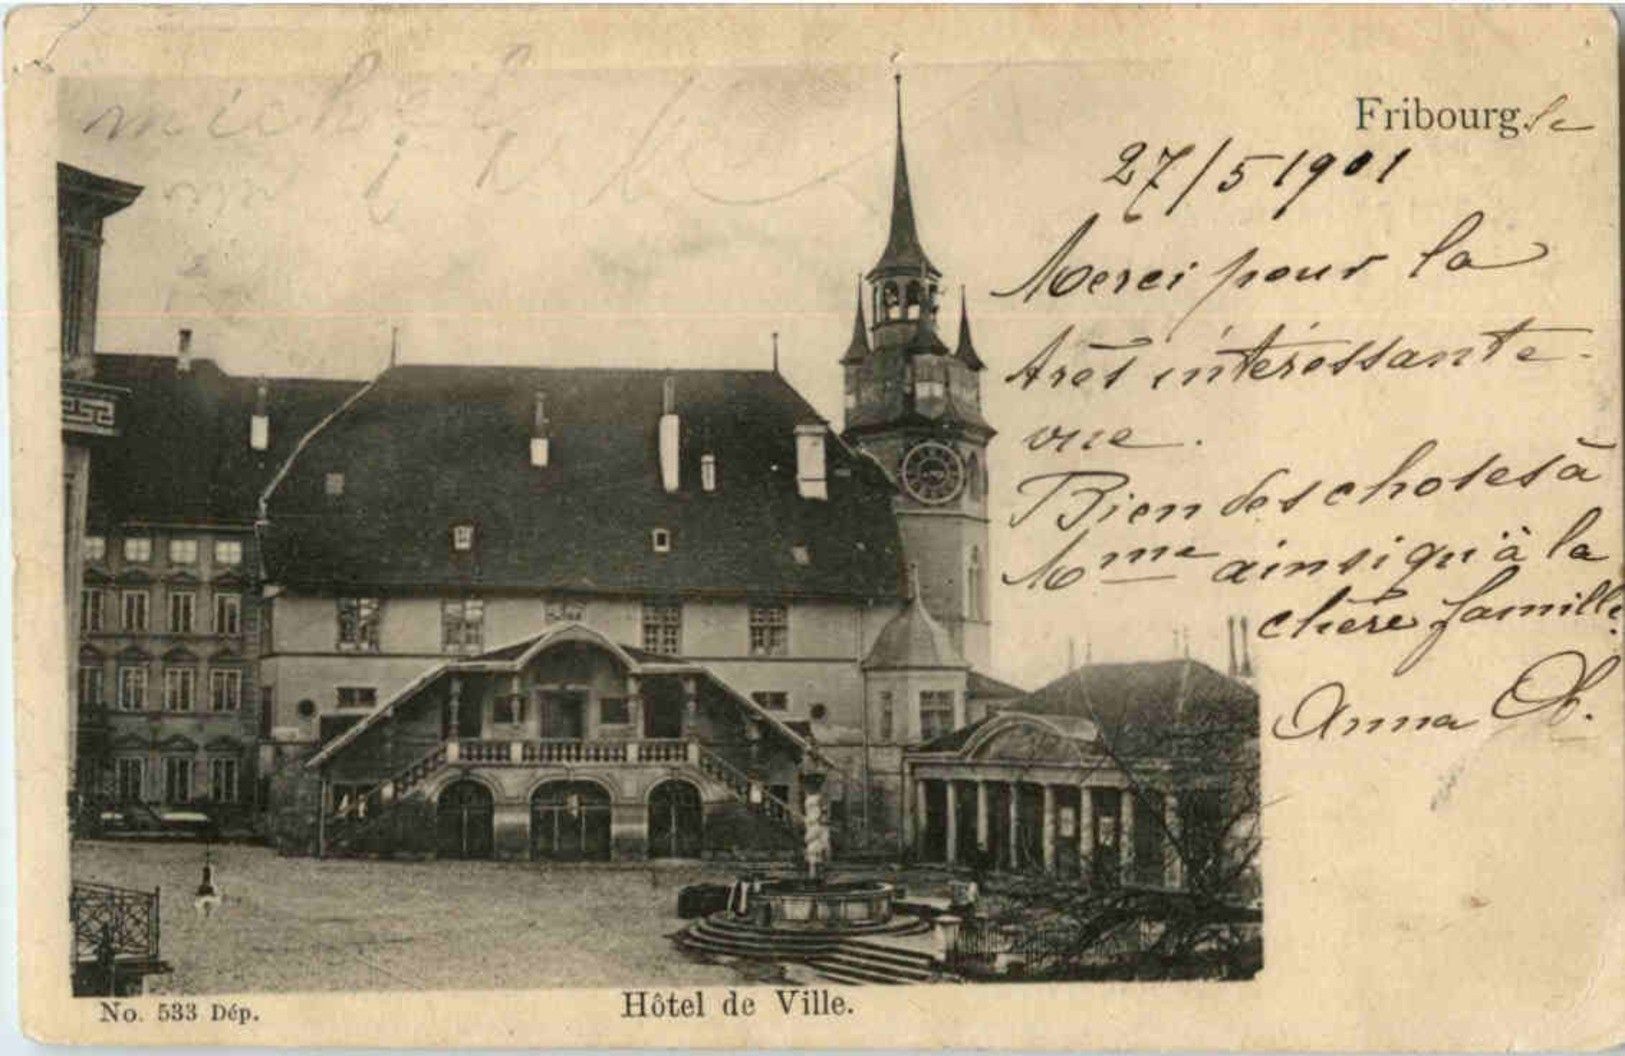 Fribourg, le
27/5 1901
Merci pour la
très intéressante
vue.
Bien des choses à
Mme ainsi qu'à la
chère famille.
Anna
No. 533 Dép.
Hôtel de Ville.